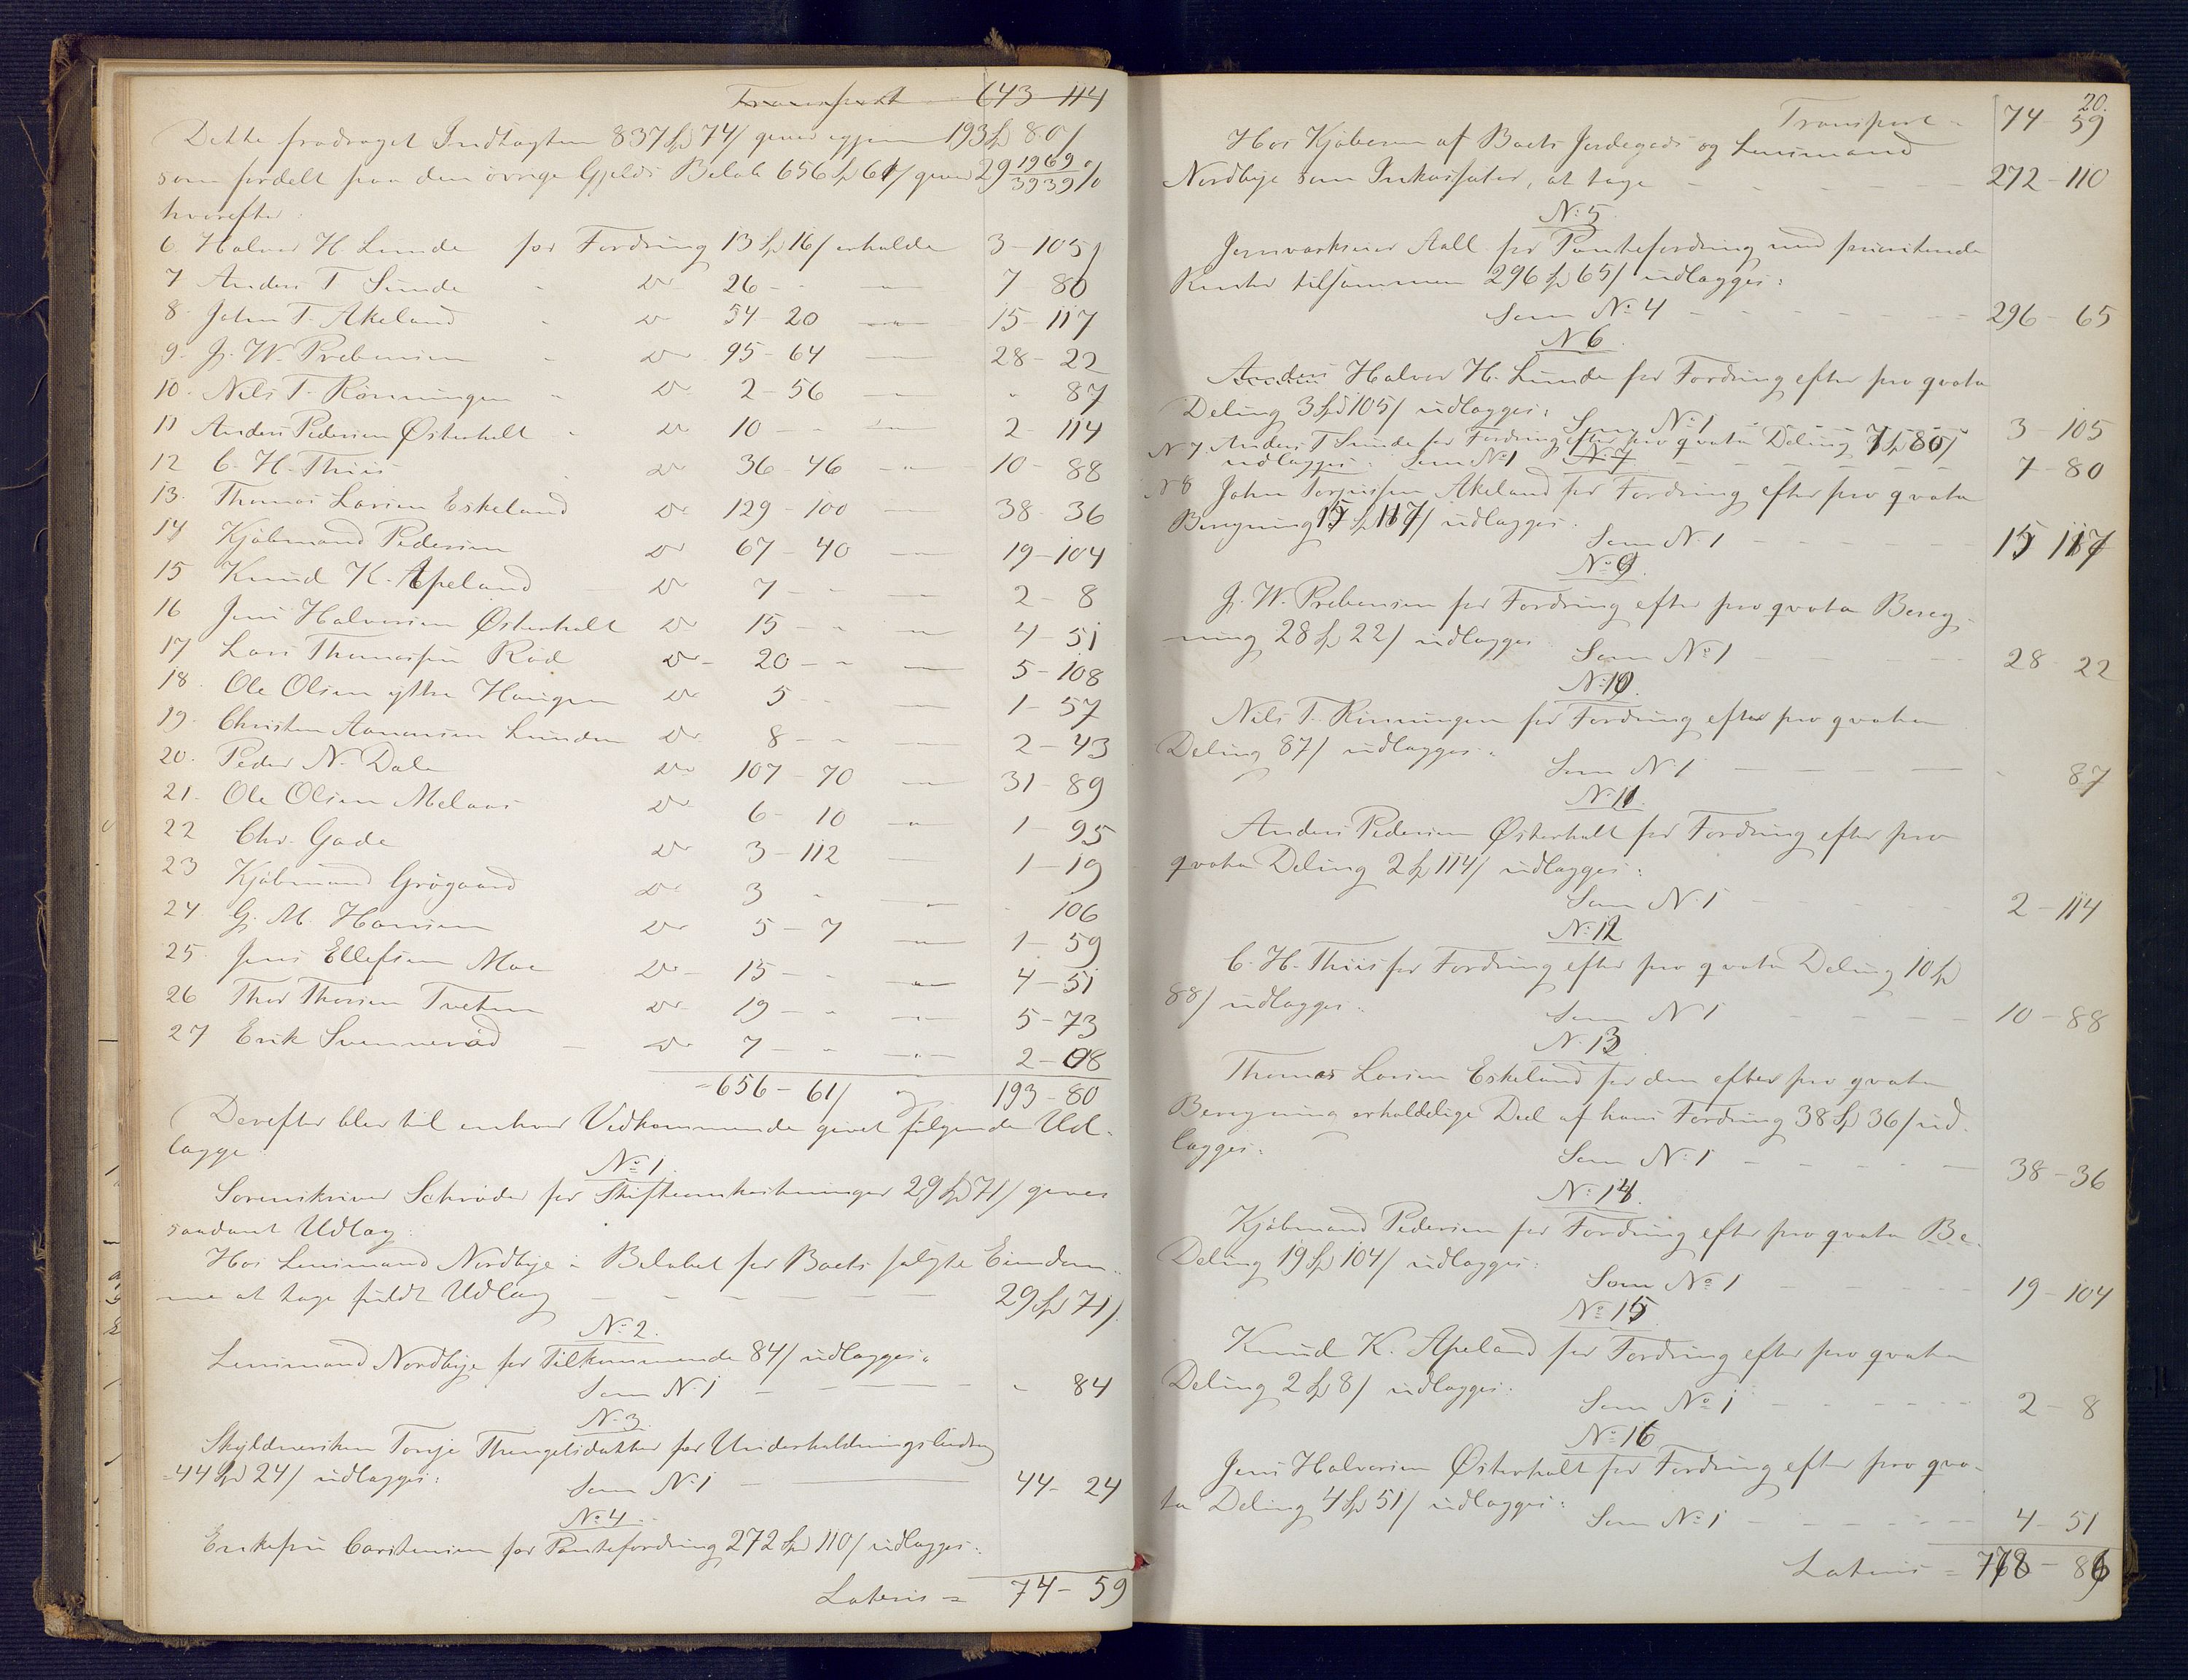 Transport 643 - 114
Dette fradraget Indtægten 837 Spd 74/ giver igjen 193 Spd 80/
som fordelt paa den øvrige Gjelds Beløb 656 Spd 61/ giver 29 1969/3939 %
hvorefter:
6. Halvor H. Lunde for Fordring 13 Spd 16/ erholder 3 - 105/
7 Anders T. Sunde " Do 26 - " — 7 - 80
8. John T. Akeland " Do 54 - 20 — 15 - 117
9. J. W. Prebensen " Do 95 - 64 — 28 - 22
10. Nils T. Rønningen " Do 2 - 56 — " 87
11 Anders Pedersen Østerholt " Do 10 - " — 2 - 114
12 C. H. Thiis Do 36 - 46 — 10 - 88
13. Thomas Larsen Eskeland Do 129 - 100 — 38 - 36
14 Kjøbmand Pedersen Do 67 - 40 — 19 - 104
15 Knud K. Apeland Do 7 - " — 2 - 8
16 Jens Halvorsen Østerholt Do 15 - " — 4 - 51
17 Lars Thomassen Rød Do 20 - " — 5 - 108
18. Ole Olsen ytre Haugen Do 5 - — 1 - 57
19. Christen Aanonsen Lunden Do 8 - " — 2 - 43
20. Peder N. Dale Do 107 - 70 — 31 - 89
21. Ole Olsen Melaas Do 6 - 10 — 1 - 95
22 Chr. Gade Do 3 - 112 — 1 - 19
23 Kjøbmand Grøgaard Do 3 " — 106
24 G. M. Hansen Do 5 - 7 — 1 - 59
25. Jens Ellefsen Moe Do 15 - " — 4 - 51
26 Thor Thorsen Tveten Do 19 - " — 5 - 73
27 Erik Svenneröd — Do 7 - " — 2 - 08
= 656 - 61/ og 193 - 80
Derefter blev til enhver Vedkommende givet følgende Ud-
lægge:
No 1.
Sorenskriver Schrøder for Skifteomkostninger 29 Spd 71/ gives
saadant Udlæg:
Hos Lensmand Nordbye i Beløbet for Boets solgte Eiendom-
me at tage fuldt Udlæg 29 Spd 71/.
No 2.
Lensmand Nordbye for Tilkommende 84/ udlægges:
Som No 1 " 84
No 3.
Skyldnersken Tonje Thengelsdatter for Underholdningsbidrag
44 Spd 24/ udlægges:
Som No 1 44 - 24
No 4.
Enkefru Carstensen for Pantefordring 272 Spd 110/ udlægges:
Lateris = 74 - 59
20.
Transport = 74 - 59
Hos Kjøberen af Boets Jordegods og Lensmand
Nordbye som Inkassator, at tage 272 - 110
No 5.
Jernværkseier Aall for Pantefordring med prioriterede
Renter tilsammen 296 Spd 65/ udlægges:
Som No 4 296 - 65
N 6.
Anders Halvor H. Lunde for Fordring efter pro qvota
Deling 3 Spd 105/ udlægges:
Som No 1 3 - 105
N 7. Anders T Sunde for Fordring efter pro qvota Deling 7 Spd 80/
udlægges: Som No 1 No 7 7 - 80
N 8 John Torjussen Akeland for Fordring efter pro qvota
Beregning 15 Spd 117/ udlægges:
Som N. 1 15 117
No 9.
J. W. Prebensen for Fordring efter pro qvota Bereg-
ning 28 Spd 22/ udlægges
Som No 1 28 - 22
No 10.
Nils T. Rönningen for Fordring efter pro qvota
Deling 87/ udlægges:
Som No 1 " 87
No 11.
Anders Pedersen Østerholt for Fordring efter pro
qvota Deling 2 Spd 114/ udlægges:
Som N. 1 2 - 114
No 12
C. H. Thiis for Fordring efter pro qvota Deling 10 Spd
88/ udlægges:
Som N 1 10 - 88
N. 13
Thomas Larsen Eskeland for den efter pro qvota
Beregning erholdelige Deel af hans Fordring 38 Spd 36/ ud-
lægges:
Som No 1 38 - 36
No 14.
Kjøbmand Pedersen for Fordring efter pro qvota Be-
Deling 19 Spd 104/ udlægges:
Som No 1 19 - 104
No 15
Knud K. Apeland for Fordring efter pro qvota
Deling 2 Spd 8/ udlægges:
Som No 1 2 - 8
No 16
Jens Halvorsen Østerholt for Fordring efter pro qvo-
ta Deling 4 Spd 51/ udlægges:
Som No 1 4 - 51
Lateris = 778 - 86